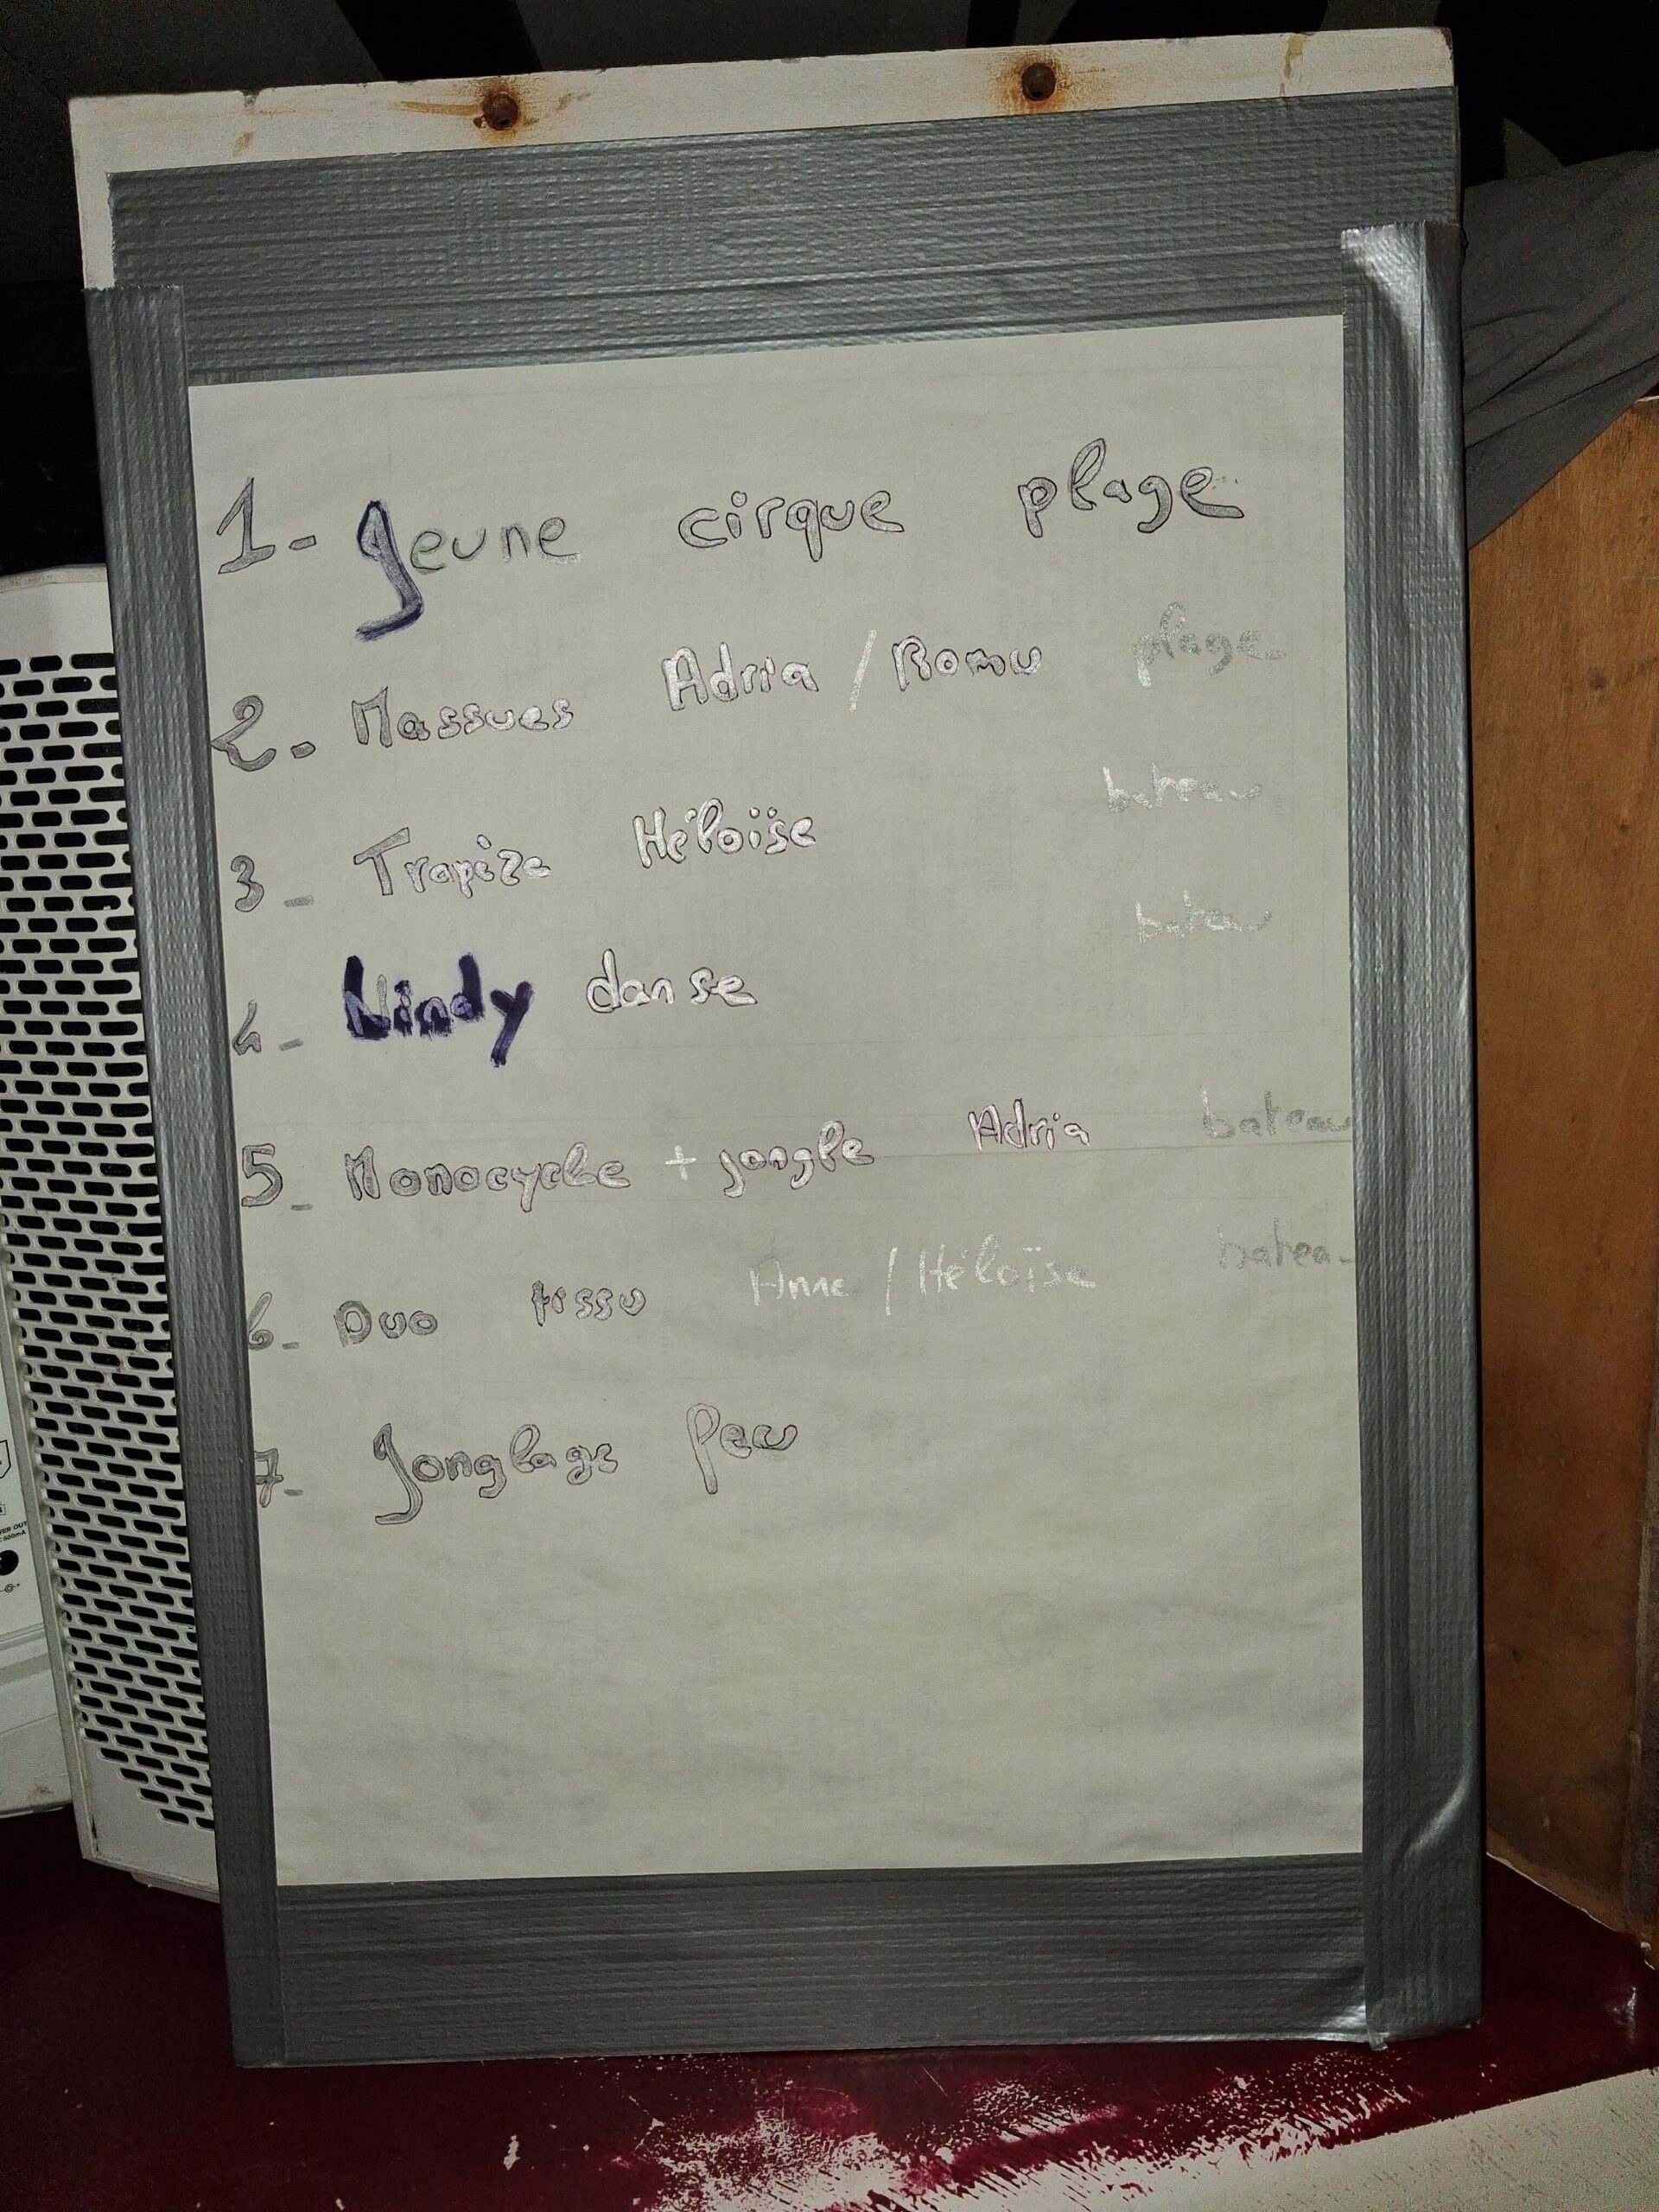 1- Jeune cirque plage
2- Massues Adria / Romu plage
3- Trapèze Héloïse bateau
4- Nindy danse bateau
5- Monocycle + jongle Adria bateau
6- Duo tissu Anne / Héloïse bateau
7- Jonglage feu